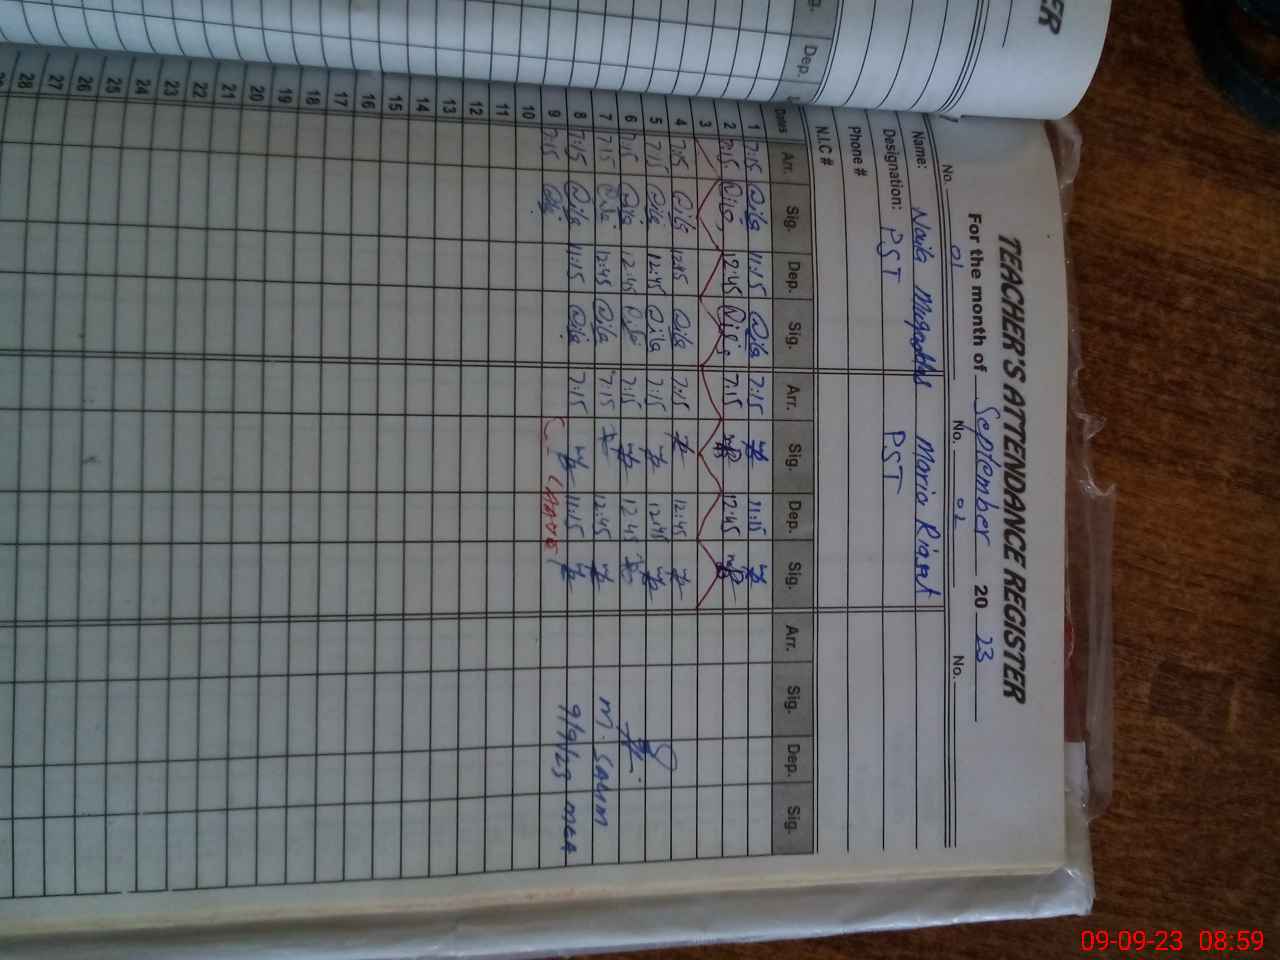 ER
Dep.
TEACHER'S ATTENDANCE REGISTER
For the month of September 20 23
No. 01 No. 02 No.
Name: Naila Maria
Designation: PST PST
Phone #
N.I.C #
Dates Arr. Sig. Dep. Sig. Arr. Sig. Dep. Sig. Arr. Sig. Dep. Sig.
1 7:15 11:15 7:15 11:15
2 7:15 12:45 7:15 12:45
3
4 7:15 12:45 7:15 12:45
5 7:15 12:45 7:15 12:45
6 7:15 12:45 7:15 12:45
7 7:15 12:45 7:15 12:45 M. SALIM
8 7:15 11:15 7:15 11:15 9/9/23 MEA
9 7:15
10
11
12
13
14
15
16
17
18
19
20
21
22
23
24
25
26
27
28
09-09-23 08:59